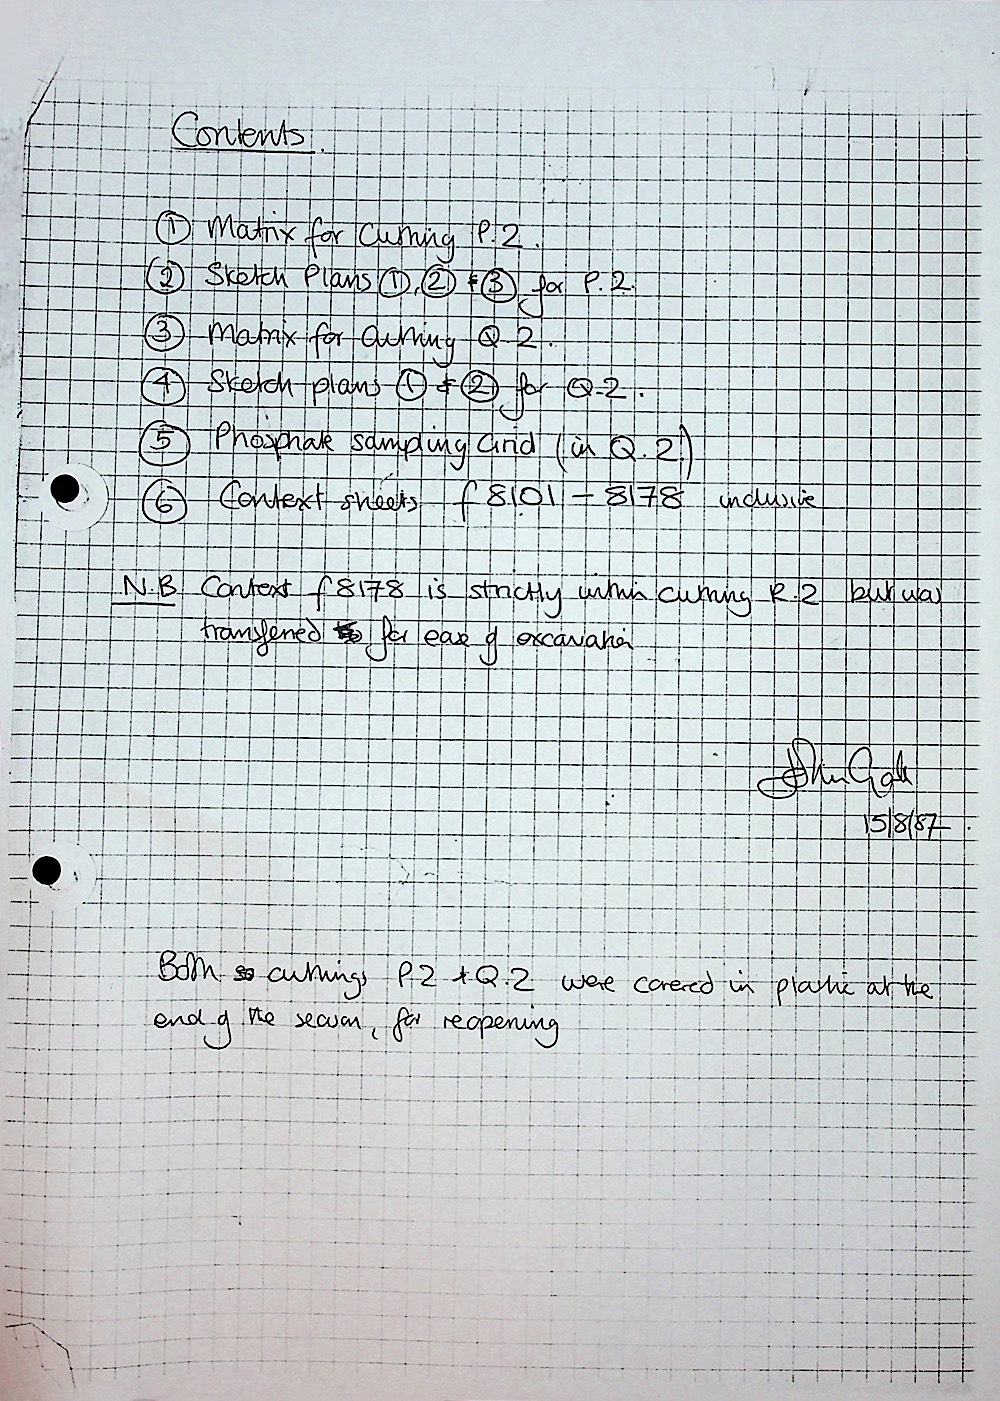 Contents.
① Matrix for Cutting P.2.
② Sketch Plans ①, ② + ③ for P.2.
③ Matrix for Cutting Q.2.
④ Sketch plans ① + ② for Q.2.
⑤ Phosphate sampling Grid (in Q.2.)
⑥ Context sheets f 8101 – 8178 inclusive
N.B Context f 8178 is strictly within cutting R.2 but was
transferred for ease of excavation
15/8/87.
Both cuttings P2 + Q.2 were covered in plastic at the
end of the season, for reopening